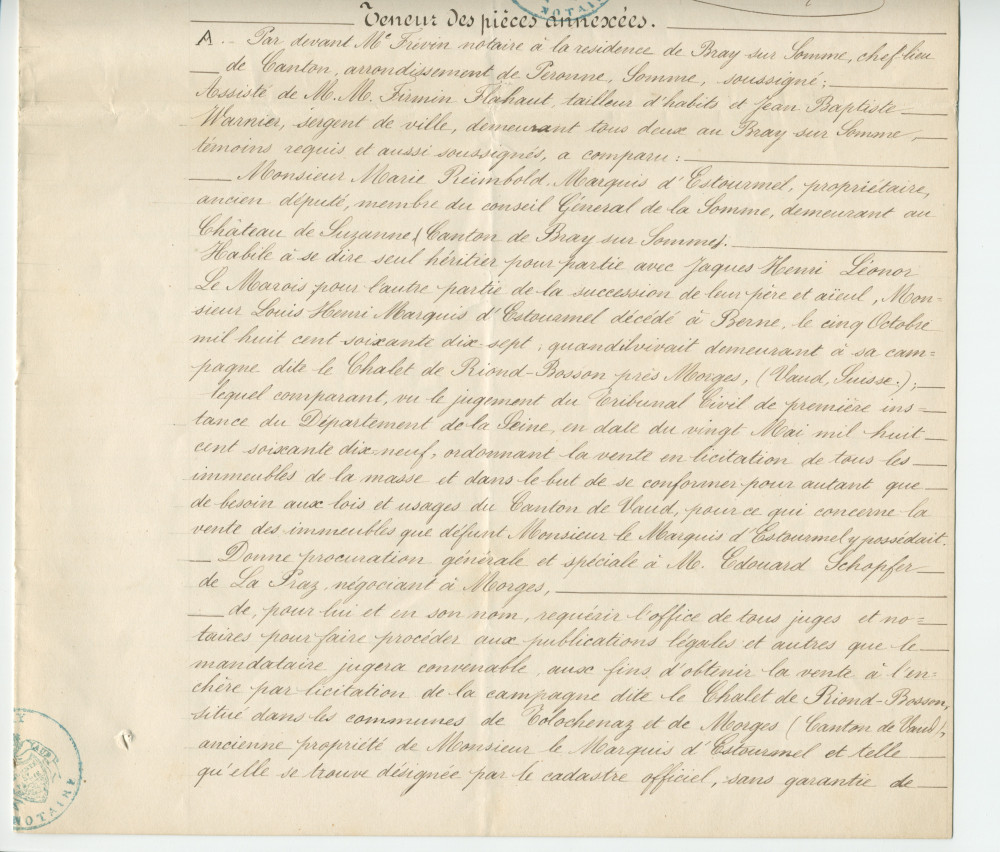 Teneur des pièces annexées.
A. – Par devant Me Frévin notaire à la résidence de Bray sur Somme, chef lieu
de Canton, arrondissement de Peronne, Somme, soussigné;
Assisté de M.M. Firmin Flahaut, tailleur d'habits et Jean Baptiste
Warnier, sergent de ville, demeurant tous deux au Bray sur Somme,
témoins requis et aussi soussignés, a comparu:
Monsieur Marie Reimbold, Marquis d'Estourmel, propriétaire,
ancien député, membre du conseil Général de la Somme, demeurant au
Château de Suzanne (Canton de Bray sur Somme).
Habile à se dire seul héritier pour partie avec Jaques Henri Léonor
Le Marois pour l'autre partie de la succession de leur père et aïeul, Mon=
sieur Louis Henri Marquis d'Estourmel décédé à Berne, le cinq Octobre
mil huit cent soixante dix-sept, quand il vivait demeurant à sa cam=
pagne dite le Chalet de Riond-Bosson près Morges, (Vaud, Suisse.);
lequel comparant, vu le jugement du Tribunal Civil de première ins=
tance du Département de la Seine, en date du vingt Mai mil huit
cent soixante dix-neuf, ordonnant la vente en licitation de tous les
immeubles de la masse et dans le but de se conformer pour autant que
de besoin aux lois et usages du Canton de Vaud, pour ce qui concerne la
vente des immeubles que défunt Monsieur le Marquis d'Estourmel y possédait.
Donne procuration générale et spéciale à M. Edouard Schopfer
de La Praz, négociant à Morges,
de, pour lui et en son nom, requérir l'office de tous juges et no=
taires pour faire procéder aux publications légales et autres que le
mandataire jugera convenable, aux fins d'obtenir la vente à l'en=
chère par licitation de la campagne dite le Chalet de Riond-Bosson,
situé dans les communes de Tolochenaz et de Morges (Canton de Vaud),
ancienne propriété de Monsieur le Marquis d'Estourmel et telle
qu'elle se trouve désignée par le cadastre officiel, sans garantie de